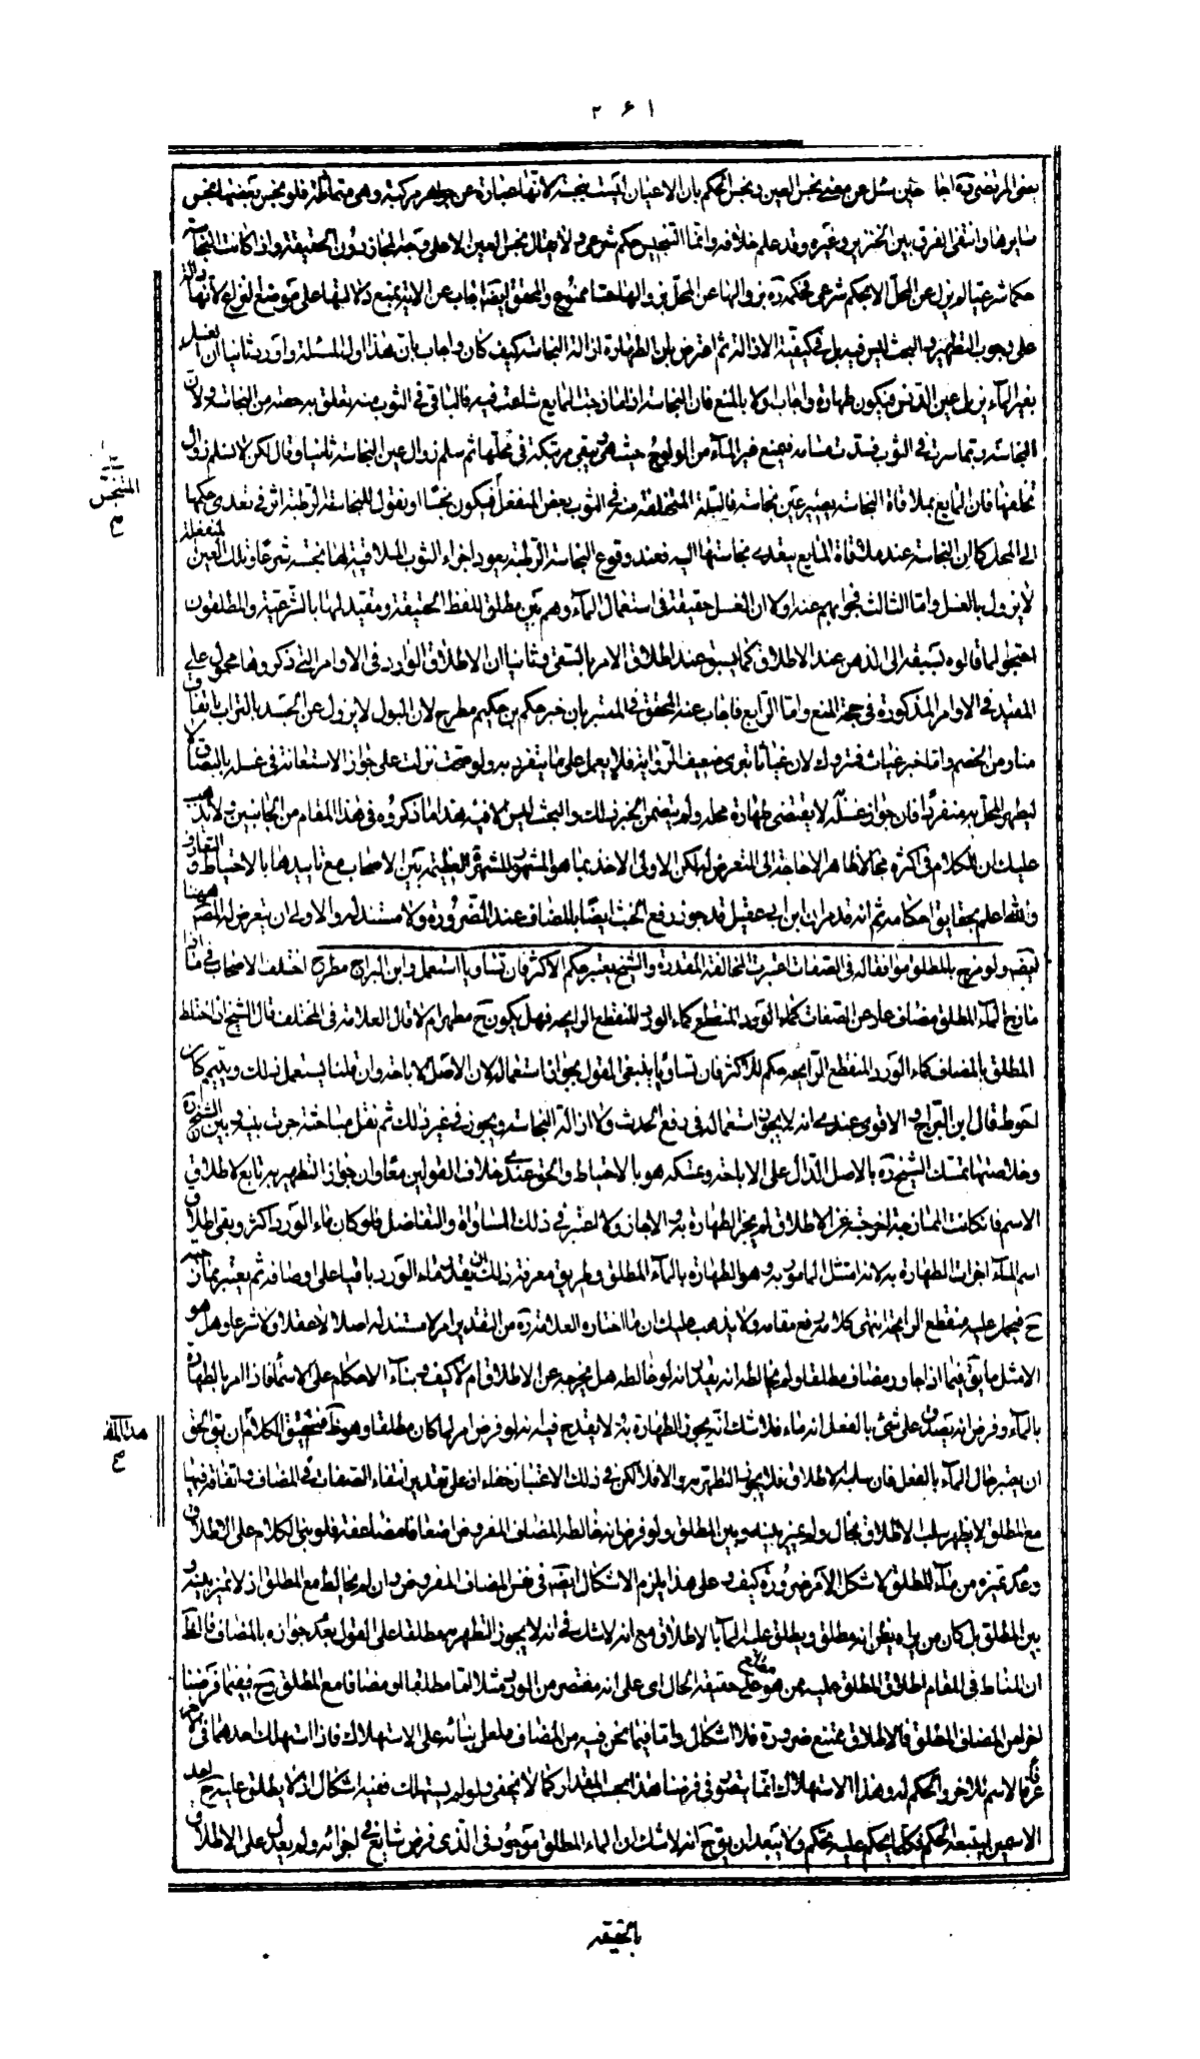 ٢۶١
يعنى المرتضى ره اجا حين سئل عن معنى نجس العين و نجس الحكم بان الاعيان ليست بنجسة لانها عبارة عن جواهر مركبة و هى متماثلة فلو نجس بعضها نجس
سايرها و انتفى الفرق بين الخنزير و غيره و قد علم خلافه و انما التنجيس حكم شرعى و لا يقال نجس العين الا على وجه المجاز دون الحقيقة و اذا كانت النجاسة
حكما شرعيا لم يزل عن المحل الا بحكم شرعى فحكمه ره بزوالها عن المحل بزوالها حسا ممنوع و المحقق ايضا اجاب عن الاية بمنع دلالتها على موضع النزاع لانها دالة
على وجوب التطهير و البحث ليس فيه بل فى كيفية الازالة ثم اعترض بان الطهارة ازالة النجاسة كيف كان و اجاب بان هذا اول المسئلة و اورد ثانيا ان الغسل
بغير الماء يزيل عين الدنس فيكون طهارة و اجاب اولا بالمنع فان النجاسة اذا مازجت المايع شاعت فيه فالباقى فى الثوب منه تعلق به حصة من النجاسة و لان
النجاسة ربما سرت فى الثوب فسدت مسامه فيمنع غير الماء من الولوج حيث هى يبقى مرتبكة فى محلها ثم سلم زوال عين النجاسة ثانيا و قال لكن لا نسلم زوال
نجاسة تخلفها فان المايع بملاقاة النجاسة يصير عين نجاسة فالبلة المتخلفة منه فى الثوب بعض المنفصل فيكون نجسا او نقول للنجاسة الرطبة اثر فى تعدى حكمها
الى المحل كما ان النجاسة عند ملاقاة المايع يتعدى نجاستها اليه فعند وقوع النجاسة الرطبة يعود اجزاء الثوب الملاقية لها نجسة شرعا و تلك العين المنفعلة
لا يزول بالغسل و اما الثالث فجوابهم عنه اولا ان الغسل حقيقة فى استعمال الماء و هم بين مطلق للفظ الحقيقة و مقيد لها بالشرعية و المطلقون
احتجوا لما قالوه بسبقه الى الذهن عند الاطلاق كما يسبق عند اطلاق الامر بالسقى و ثانيا ان الاطلاق الوارد فى الاوامر التى ذكروها محمول على
المقيد فى الاوامر المذكورة فى حجة المنع و اما الرابع فاجاب عنه المحقق فى المعتبر بان خبر حكم بن حكيم مطرح لان البول لا يزول عن الجسد بالتراب باتفاق
منا و من الخصم و اما خبر غياث فمتروك لان غياثا بترى ضعيف الرواية فلا يعمل على ما ينفرد به و لو صحت نزلت على جواز الاستعانة فى غسله بالبصاق لا
ليطهر المحل به منفردا فان جواز غسله لا يقتضى طهارة محله و لم يتضمن الخبر ذلك و البحث ليس الا فيه هذا ما ذكروه فى هذا المقام من الجانبين و لا يذهب
عليك ان للكلام فى اكثره مجالا ظاهرا لا حاجة الى التعرض له لكن الاولى الاخذ بما هو المشهور الشهرة العظيمة بين الاصحاب مع تاييدها بالاحتياط و التعارف
و الله اعلم بحقايق احكامه ثم انه قد مر ان ابن ابى عقيل قد جوز رفع الخبث ايضا بالمضاف عند الضرورة و لا مستند له و الاولى ان يتعرض له المص ههنا
ايضا و لو مزج بالمطلق موافقا له فى الصفات اعتبرت المخالفة المقدرة و الشيخ يعتبر حكم الاكثر فان تساويا استعمل و ابن البراج مطرح اختلف الاصحاب فى ما اذا
مازج الماء المطلق مضاف عار عن الصفات كماء الورد المنقطع الرايحة فهل يكون ح مطهرا ام لا قال العلامة فى المختلف قال الشيخ اذا اختلط
المطلق بالمضاف كماء الورد المنقطع الرايحة حكم للاكثر فان تساويا ينبغى القول بجواز استعماله لان الاصل الاباحة و ان قلنا يستعمل ذلك و يتيمم كان
احوط قال ابن البراج و الاقوى عندى انه لا يجوز استعماله فى رفع الحدث و لا ازالة النجاسة و يجوز فى غير ذلك ثم نقل مباحثة جرت بينه و بين الشيخ ره
و خلاصتها تمسك الشيخ ره بالاصل الدال على الاباحة و تمسكه هو بالاحتياط و الحق عندى خلاف القولين معا و ان جواز التطهير به تابع لاطلاق
الاسم فان كانت الممازجة اخرجته عن الاطلاق لم يجز الطهارة به و الا جاز و لا اعتبر فى ذلك المساواة و التفاضل فلو كان ماء الورد اكثر و بقى اطلاق
اسم الماء اجزات الطهارة به لانه امتثل المامور به و هو الطهارة بالماء المطلق و طريق معرفة ذلك ان يقدر ماء الورد باقيا على اوصافه ثم يعتبر ممازجته
ح فيحمل عليه منقطع الرايحة انتهى كلامه رفع مقامه و لا يذهب عليك ان ما اختاره العلامة ره من التقدير امر لا مستند له اصلا لا عقلا و لا شرعا و هل هو
الا مثل ما يق فيما اذا جاور مضاف مطلقا و لم يخالطه انه يقدر انه لو خالطه هل يخرجه عن الاطلاق ام لا كيف و بناء الاحكام على الاسماء فاذا امر بالطهارة
بالماء و فرض انه يصدق على شئ بالفعل انه ماء فلا شك انه يجوز الطهارة به و لا يقدح فيه انه لو فرض امر لما كان مطلقا و هو ظ فتحقيق الكلام ان يق الحق
ان يعتبر حال الماء بالفعل فان سلبه الاطلاق فلا يجوز التطهر به و الا فلا لكن فى ذلك الاعتبار خفاء اذ على تقدير انتفاء الصفات فى المضاف و اتفاقه فيها
مع المطلق لا يظهر سلب الاطلاق بحال و لا تميز بينه و بين المطلق و لو فرض انه خالطه المضاف المفروض اضعافا مضاعفة فلو بنى الكلام على الاطلاق
و عدم تميزه من ماء المطلق لاشكل الامر ضرورة كيف و على هذا يلزم الاشكال ايضا فى نفس المضاف المفروض و ان لم يخالط مع المطلق اذ لا تميز بينه و
بين المطلق بل كان من يراه يظن انه مطلق و يطلق عليه الماء بالاطلاق مع انه لا شك فى انه لا يجوز التطهر به مطلقا على القول بعدم جوازه بالمضاف فالظ
ان المناط فى المقام اطلاق المطلق عليه ممن هو مطلع على حقيقة الحال اى على انه معتصر من الورد مثلا اما مطلقا او مضافا مع المطلق و ح ففيما فرضنا
اخرا من المضاف المطلق فالاطلاق ممتنع ضرورة فلا اشكال و اما فيما نحن فيه من المضاف فلعل بنائه على الاستهلاك فاذا استهلك احدهما فى الاخر
عرفا فالاسم للاخر و الحكم له و هذا الاستهلاك انما يتصور فى فرضنا هذا بحسب المقدار كما لا يخفى و لو لم يستهلك ففيه اشكال اذ لا يطلق عليه ح احد
الاسمين ليتبعه الحكم فكلما يحكم عليه تحكم و لا يبعد ان يق ح انه لا شك ان الماء المطلق موجود فى الذى فرض شايع فى اجزائه و لم يعدل على الاطلاق
بالحقيقة
المتنجس
م
هذا الماء
م